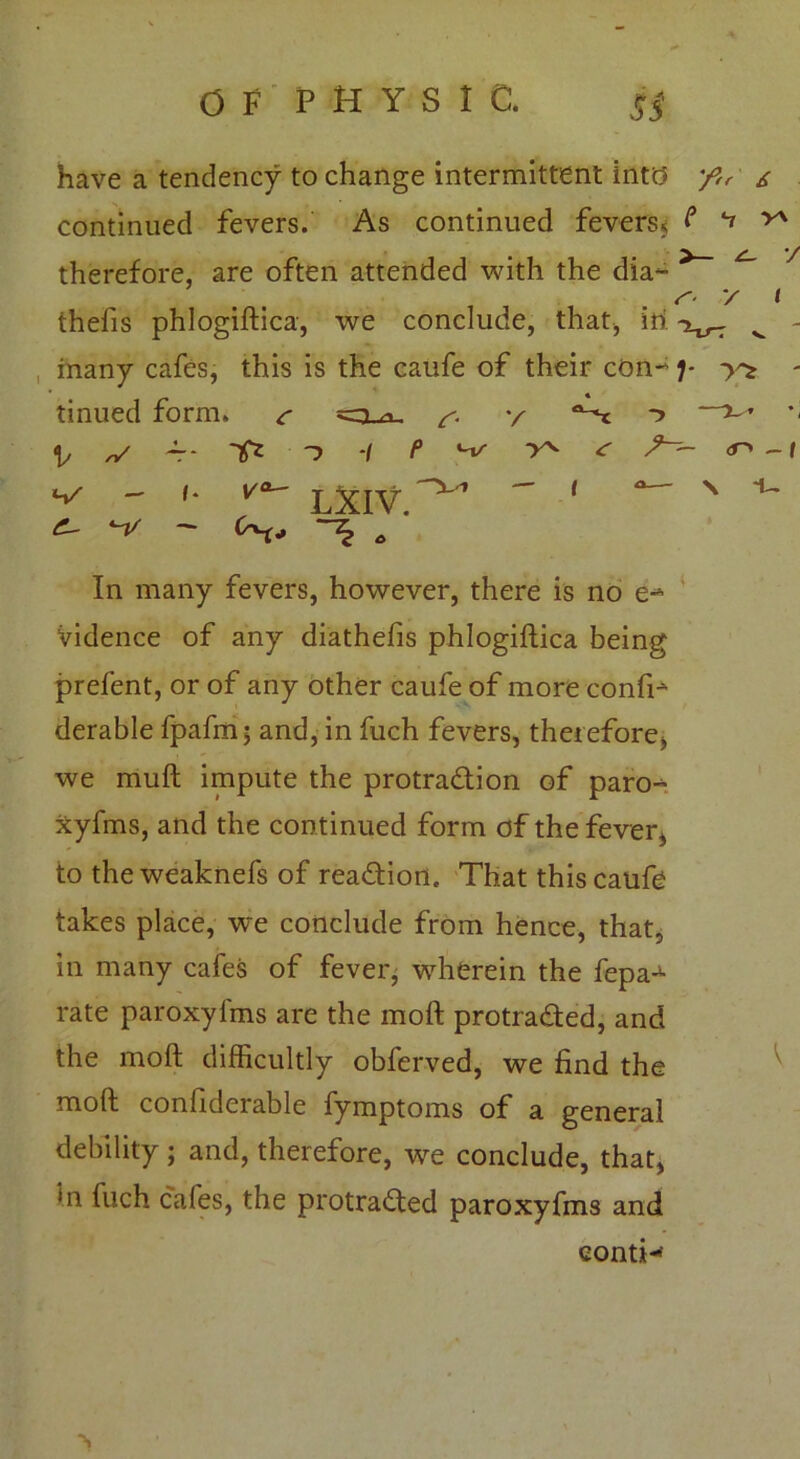 OF PHYSIC. 55
have a tendency to change intermittent into
continued fevers. As continued fevers,
therefore, are often attended with the dia-
thesis phlogistica, we conclude, that, in
many cases, this is the cause of their con-
tinued form.
LXIV.
In many fevers, however, there is no e-
vidence of any diathesis phlogistica being
present, or of any other cause of more consi-
derable spasm; and, in such fevers, therefore,
we must impute the protraction of paro-
xysms, and the continued form of the fever,
to the weakness of reaction. That this cause
takes place, we conclude from hence, that,
in many cases of fever, wherein the sepa-
rate paroxysms are the most protracted, and
the most difficultly observed, we find the
most considerable symptoms of a general
debility; and, therefore, we conclude, that,
in such cases, the protracted paroxysms and
conti-